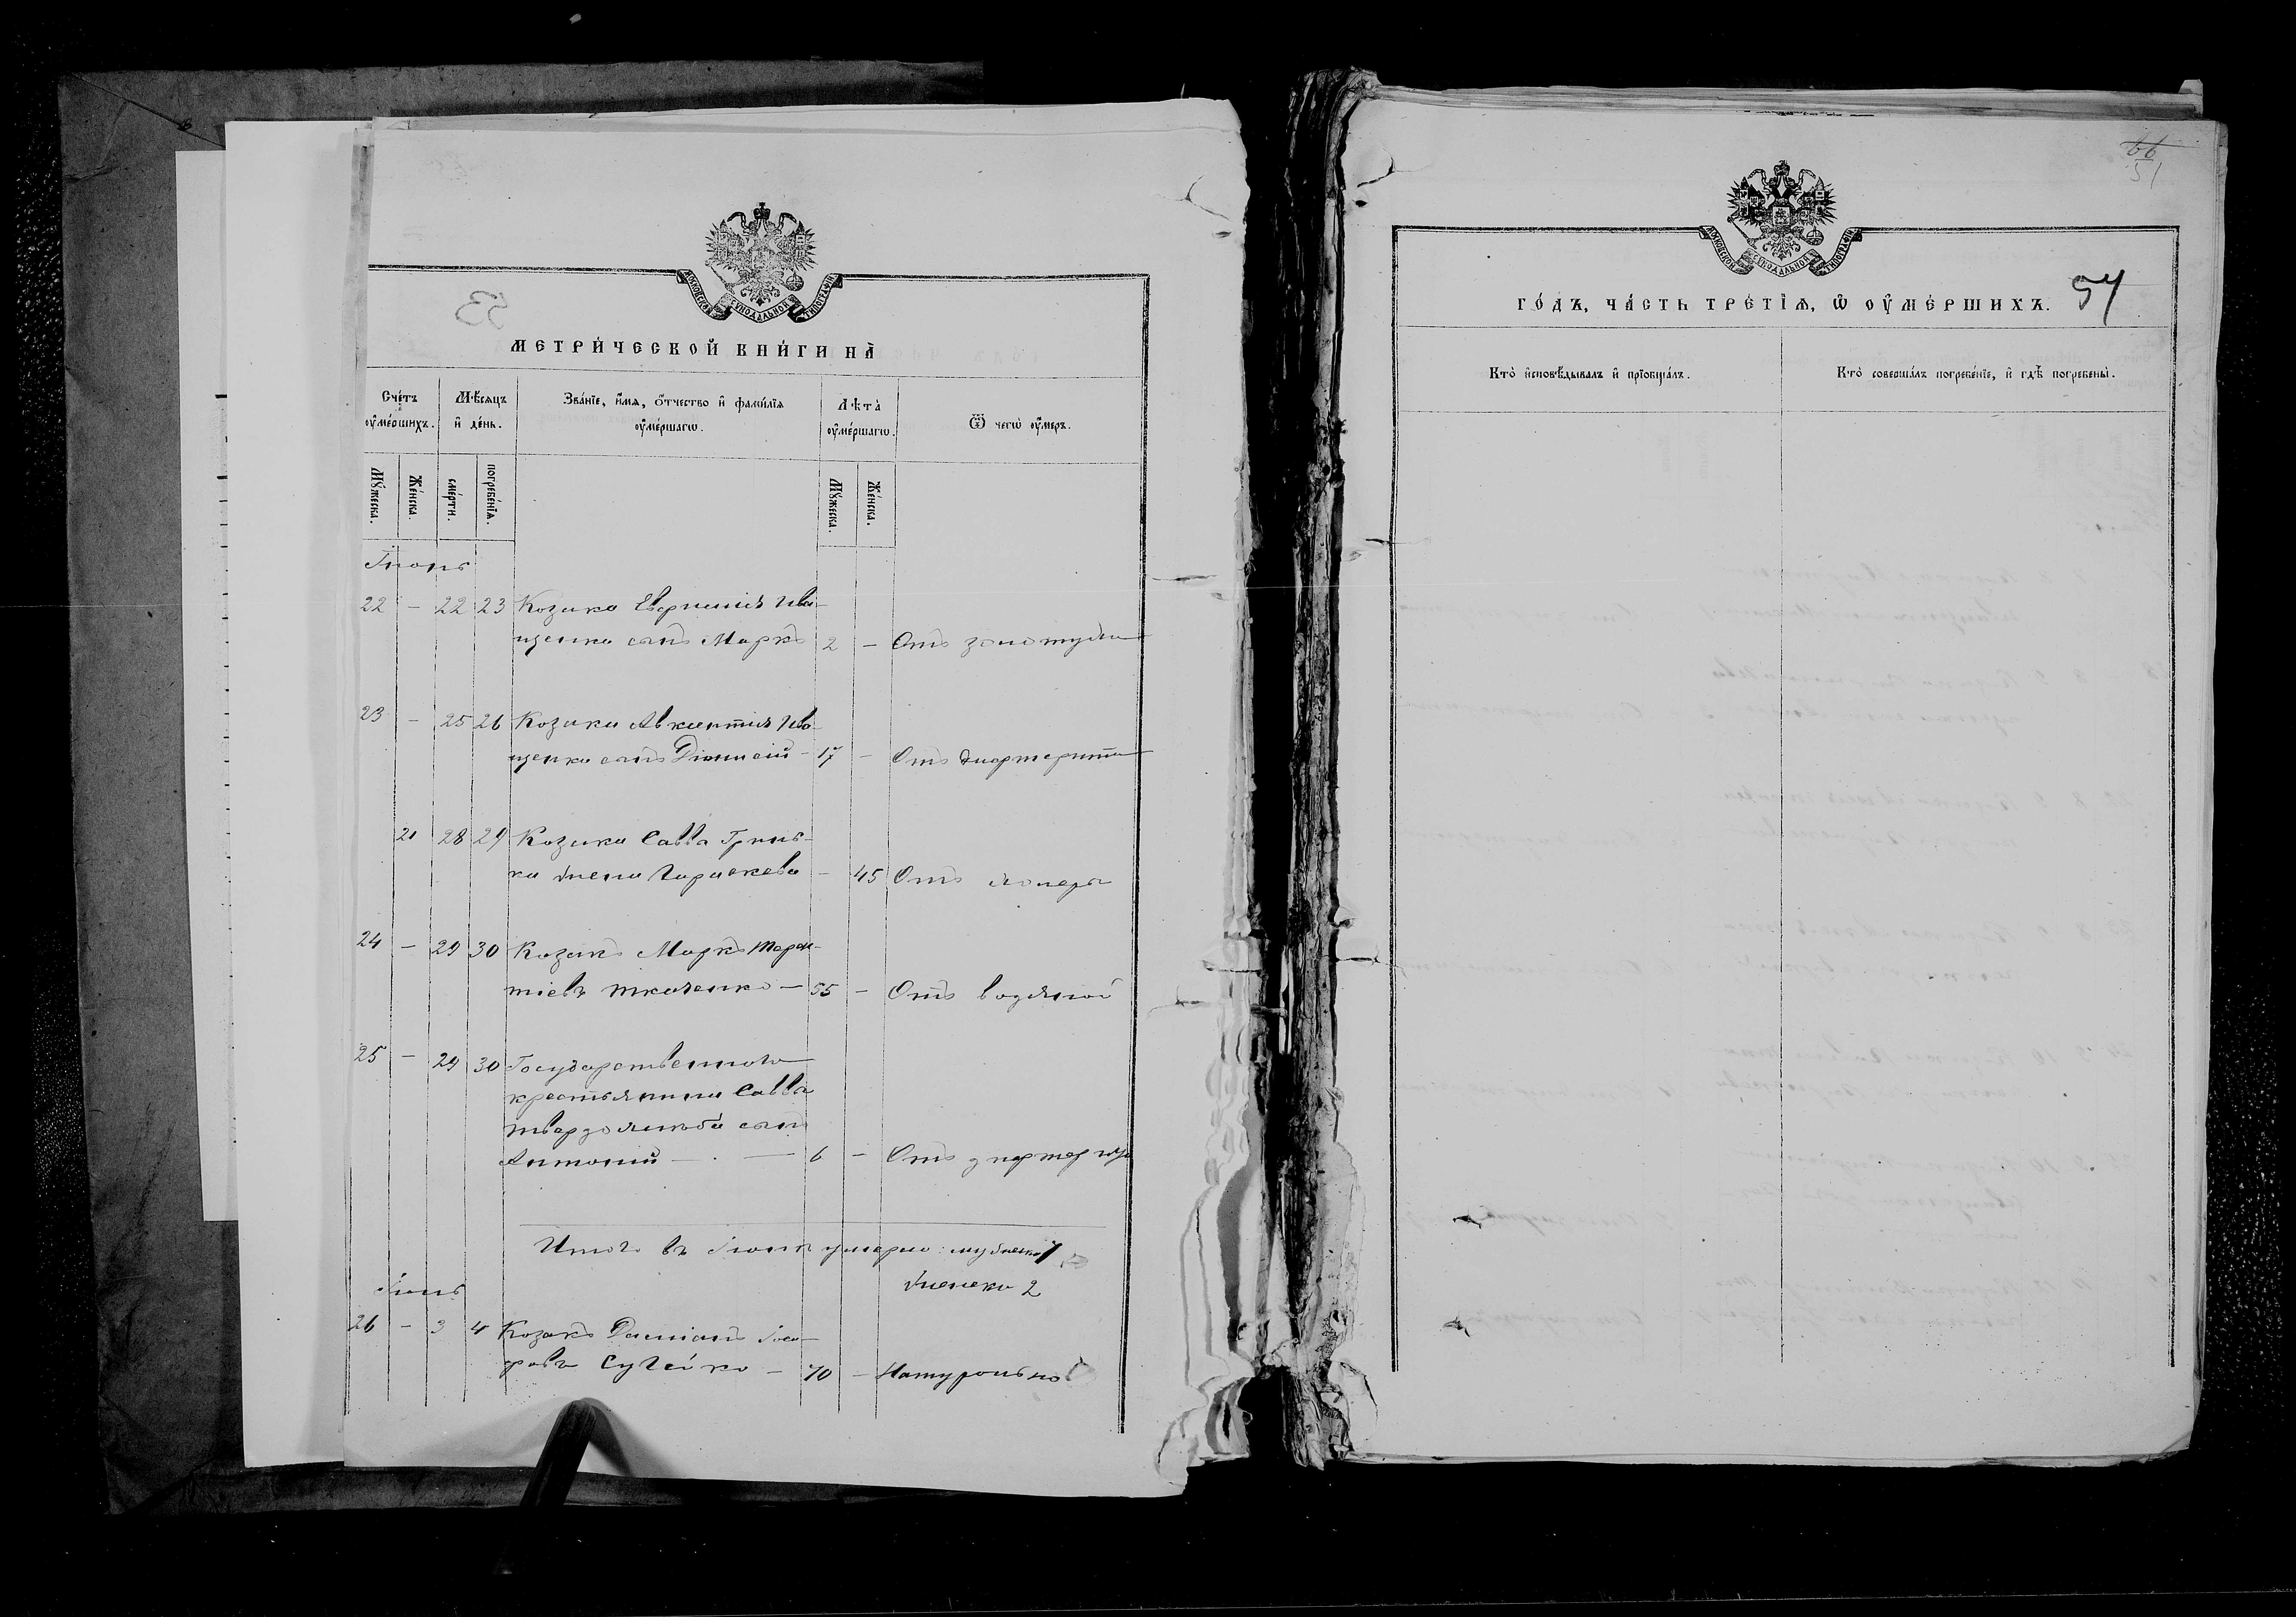 МОСКОВСКОЙ СѴНОДАЛЬНОЙ ТИПОГРАФІИ
53
МЕТРИ́ЧЕСКОЙ КНИ́ГИ НА̀
Сче́тъ оу҆ме́ршихъ.
Мѣ́сяцъ и҆ де́нь.
Зва́нїе, и҆́мя, ѻ҆́тчество и҆ фами́лїя оу҆ме́ршагѡ.
Лѣта̀ оу҆ме́ршагѡ.
Ѿ чегѡ̀ оу҆́меръ.
Мꙋ́жеска.
Же́нска.
сме́рти.
погребе́нїя.
Мꙋ́жеска.
Же́нска.
Іюнь
22 – 22 23 Козака Евфимія Ива-
щенка сынъ Маркъ 2 – Отъ золотухи
23 – 25 26 Козака Авксентія Ива-
щенка сынъ Діонисій – 17 – Отъ дифтерита
21 28 29 Козака Савва Гринь-
ка жена Параскева – 45 Отъ холеры
24 – 29 30 Козакъ Маркъ Терен-
тіевъ Ткаченко – 55 – Отъ водяной
25 – 29 30 Государственного
крестьянина Савва
Твердохлѣба сынъ
Антоній – 6 – Отъ дифтерита
Итого въ Іюнѣ умерло: мужеска 7
женска 2
Іюль
26 – 3 4 Козакъ Даміанъ
Сугейко – 70 – Натурально
66
51
МОСКОВСКОЙ СѴНОДАЛЬНОЙ ТИПОГРАФІИ
ГО́ДЪ, ЧА́СТЬ ТРЕ́ТЇЯ, Ѡ҆ ОУ҆МЕ́РШИХЪ. 54
Кто̀ и҆сповѣ́дывалъ и҆ прїобща́лъ.
Кто̀ соверша́лъ погребе́нїе, и҆ гдѣ̀ погребены̀.